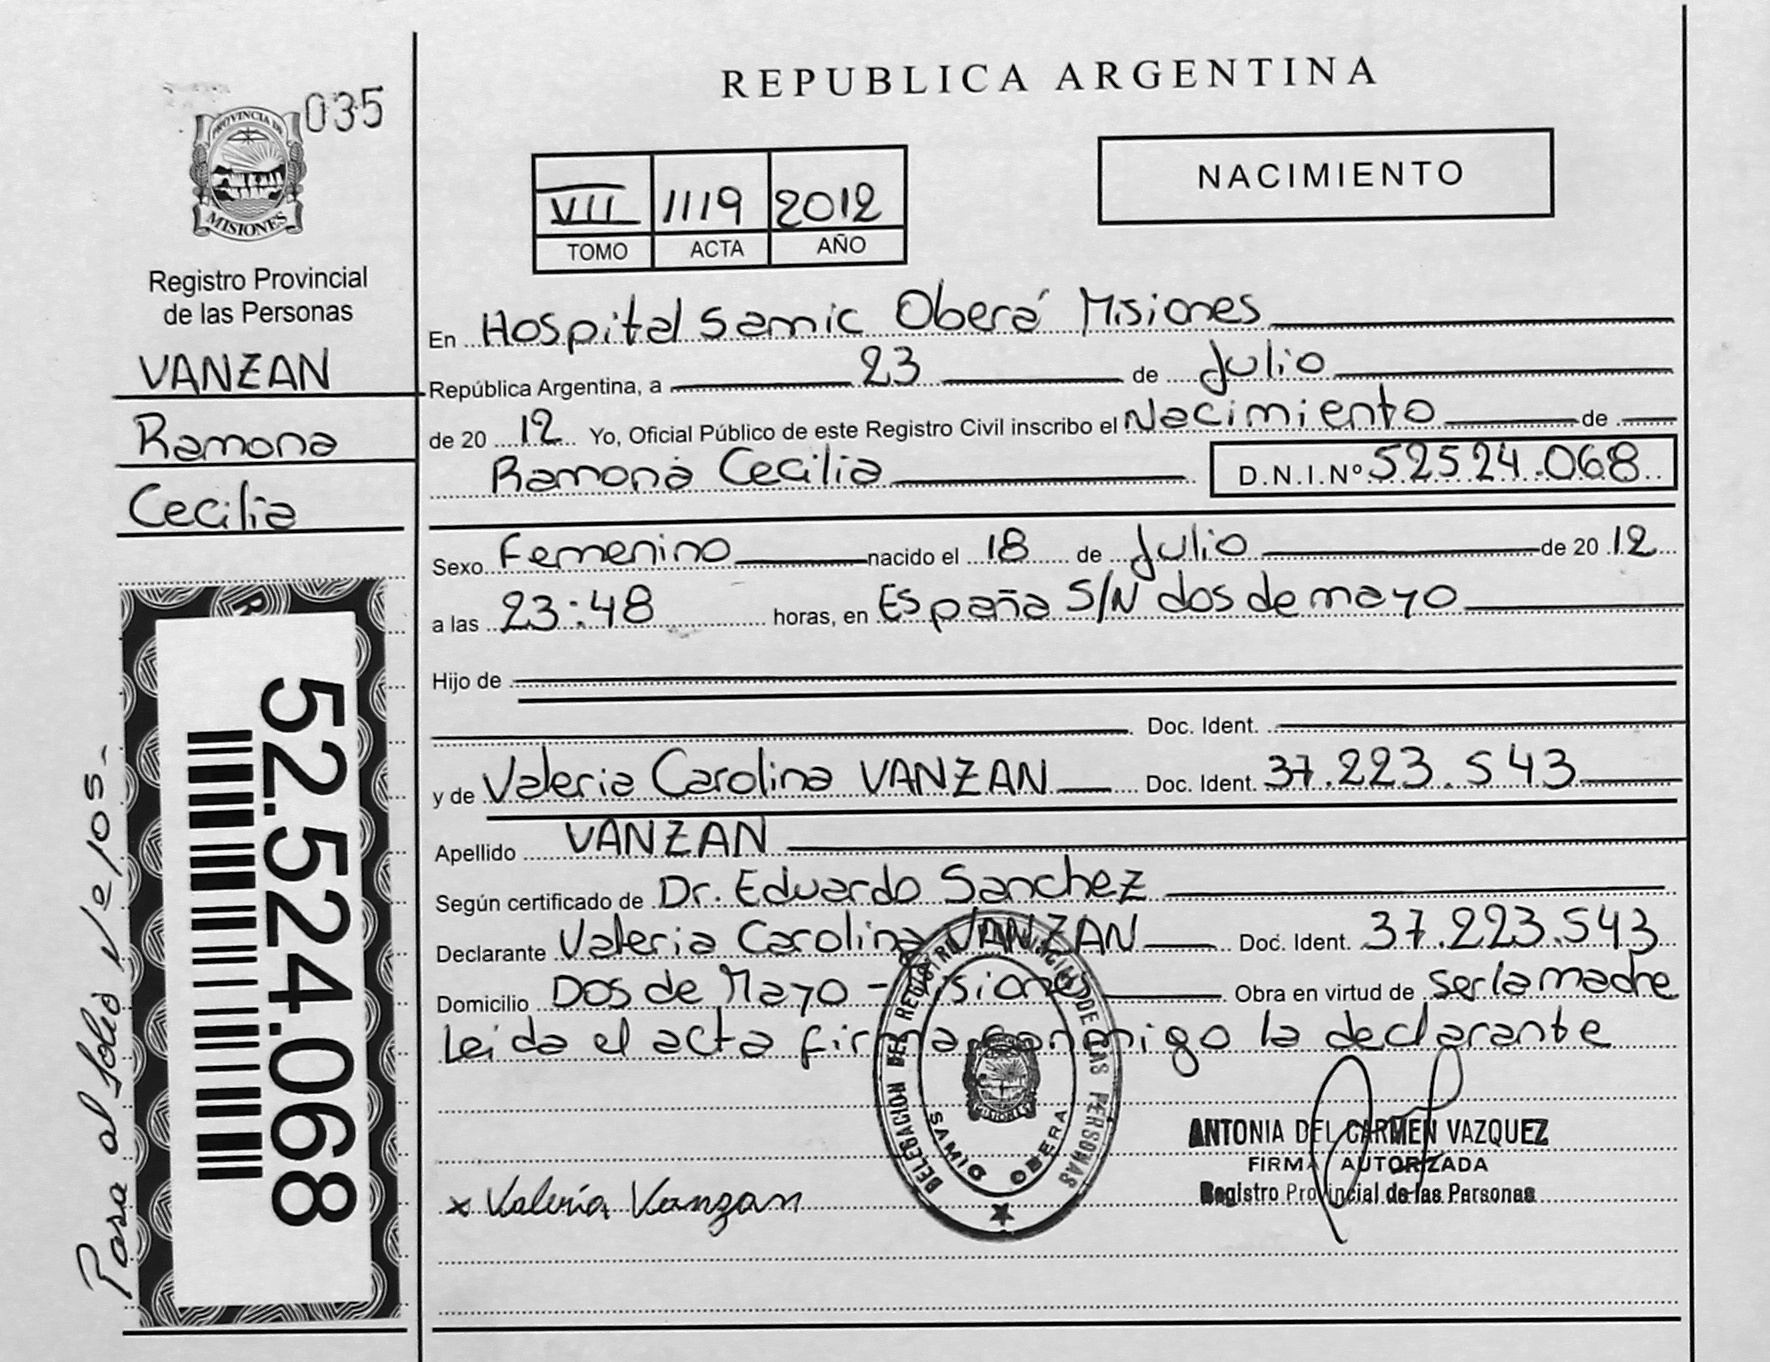 035
PROVINCIA DE
MISIONES
Registro Provincial
de las Personas
VANZAN
Ramona
Cecilia
52.524.068
Pasa al folio Nº 105-
REPUBLICA ARGENTINA
NACIMIENTO
VII 1119 2012
TOMO ACTA AÑO
En Hospital Samic Oberá Misiones
República Argentina, a 23 de Julio
de 20 12 Yo, Oficial Público de este Registro Civil inscribo el Nacimiento de
Ramona Cecilia D.N.I.Nº 52524.068
Sexo Femenino nacido el 18 de Julio de 20 12
a las 23:48 horas, en España S/N dos de mayo
Hijo de
Doc. Ident.
y de Valeria Carolina VANZAN Doc. Ident. 37.223.543
Apellido VANZAN
Según certificado de Dr. Eduardo Sanchez
Declarante Valeria Carolina VANZAN Doc. Ident. 37.223.543
Domicilio Dos de Mayo - Misiones Obra en virtud de ser la madre
Leida el acta firma conmigo la declarante
DELEGACION DEL REGISTRO PROVINCIAL DE LAS PERSONAS
SAMIC OBERA
MISIONES
ANTONIA DEL CARMEN VAZQUEZ
FIRMA AUTORIZADA
Registro Provincial de las Personas
x Valeria Vanzan